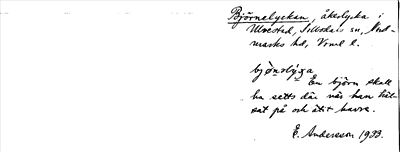 Björnelyckan, åkerlycka i
Ulvestad, Sillerud sn, Nord-
marks hd, Vrml l.
bjö̀nəly̆ka
En björn skall
ha setts där när han häl-
sat på och ätit havre.
E. Andersson 1933.